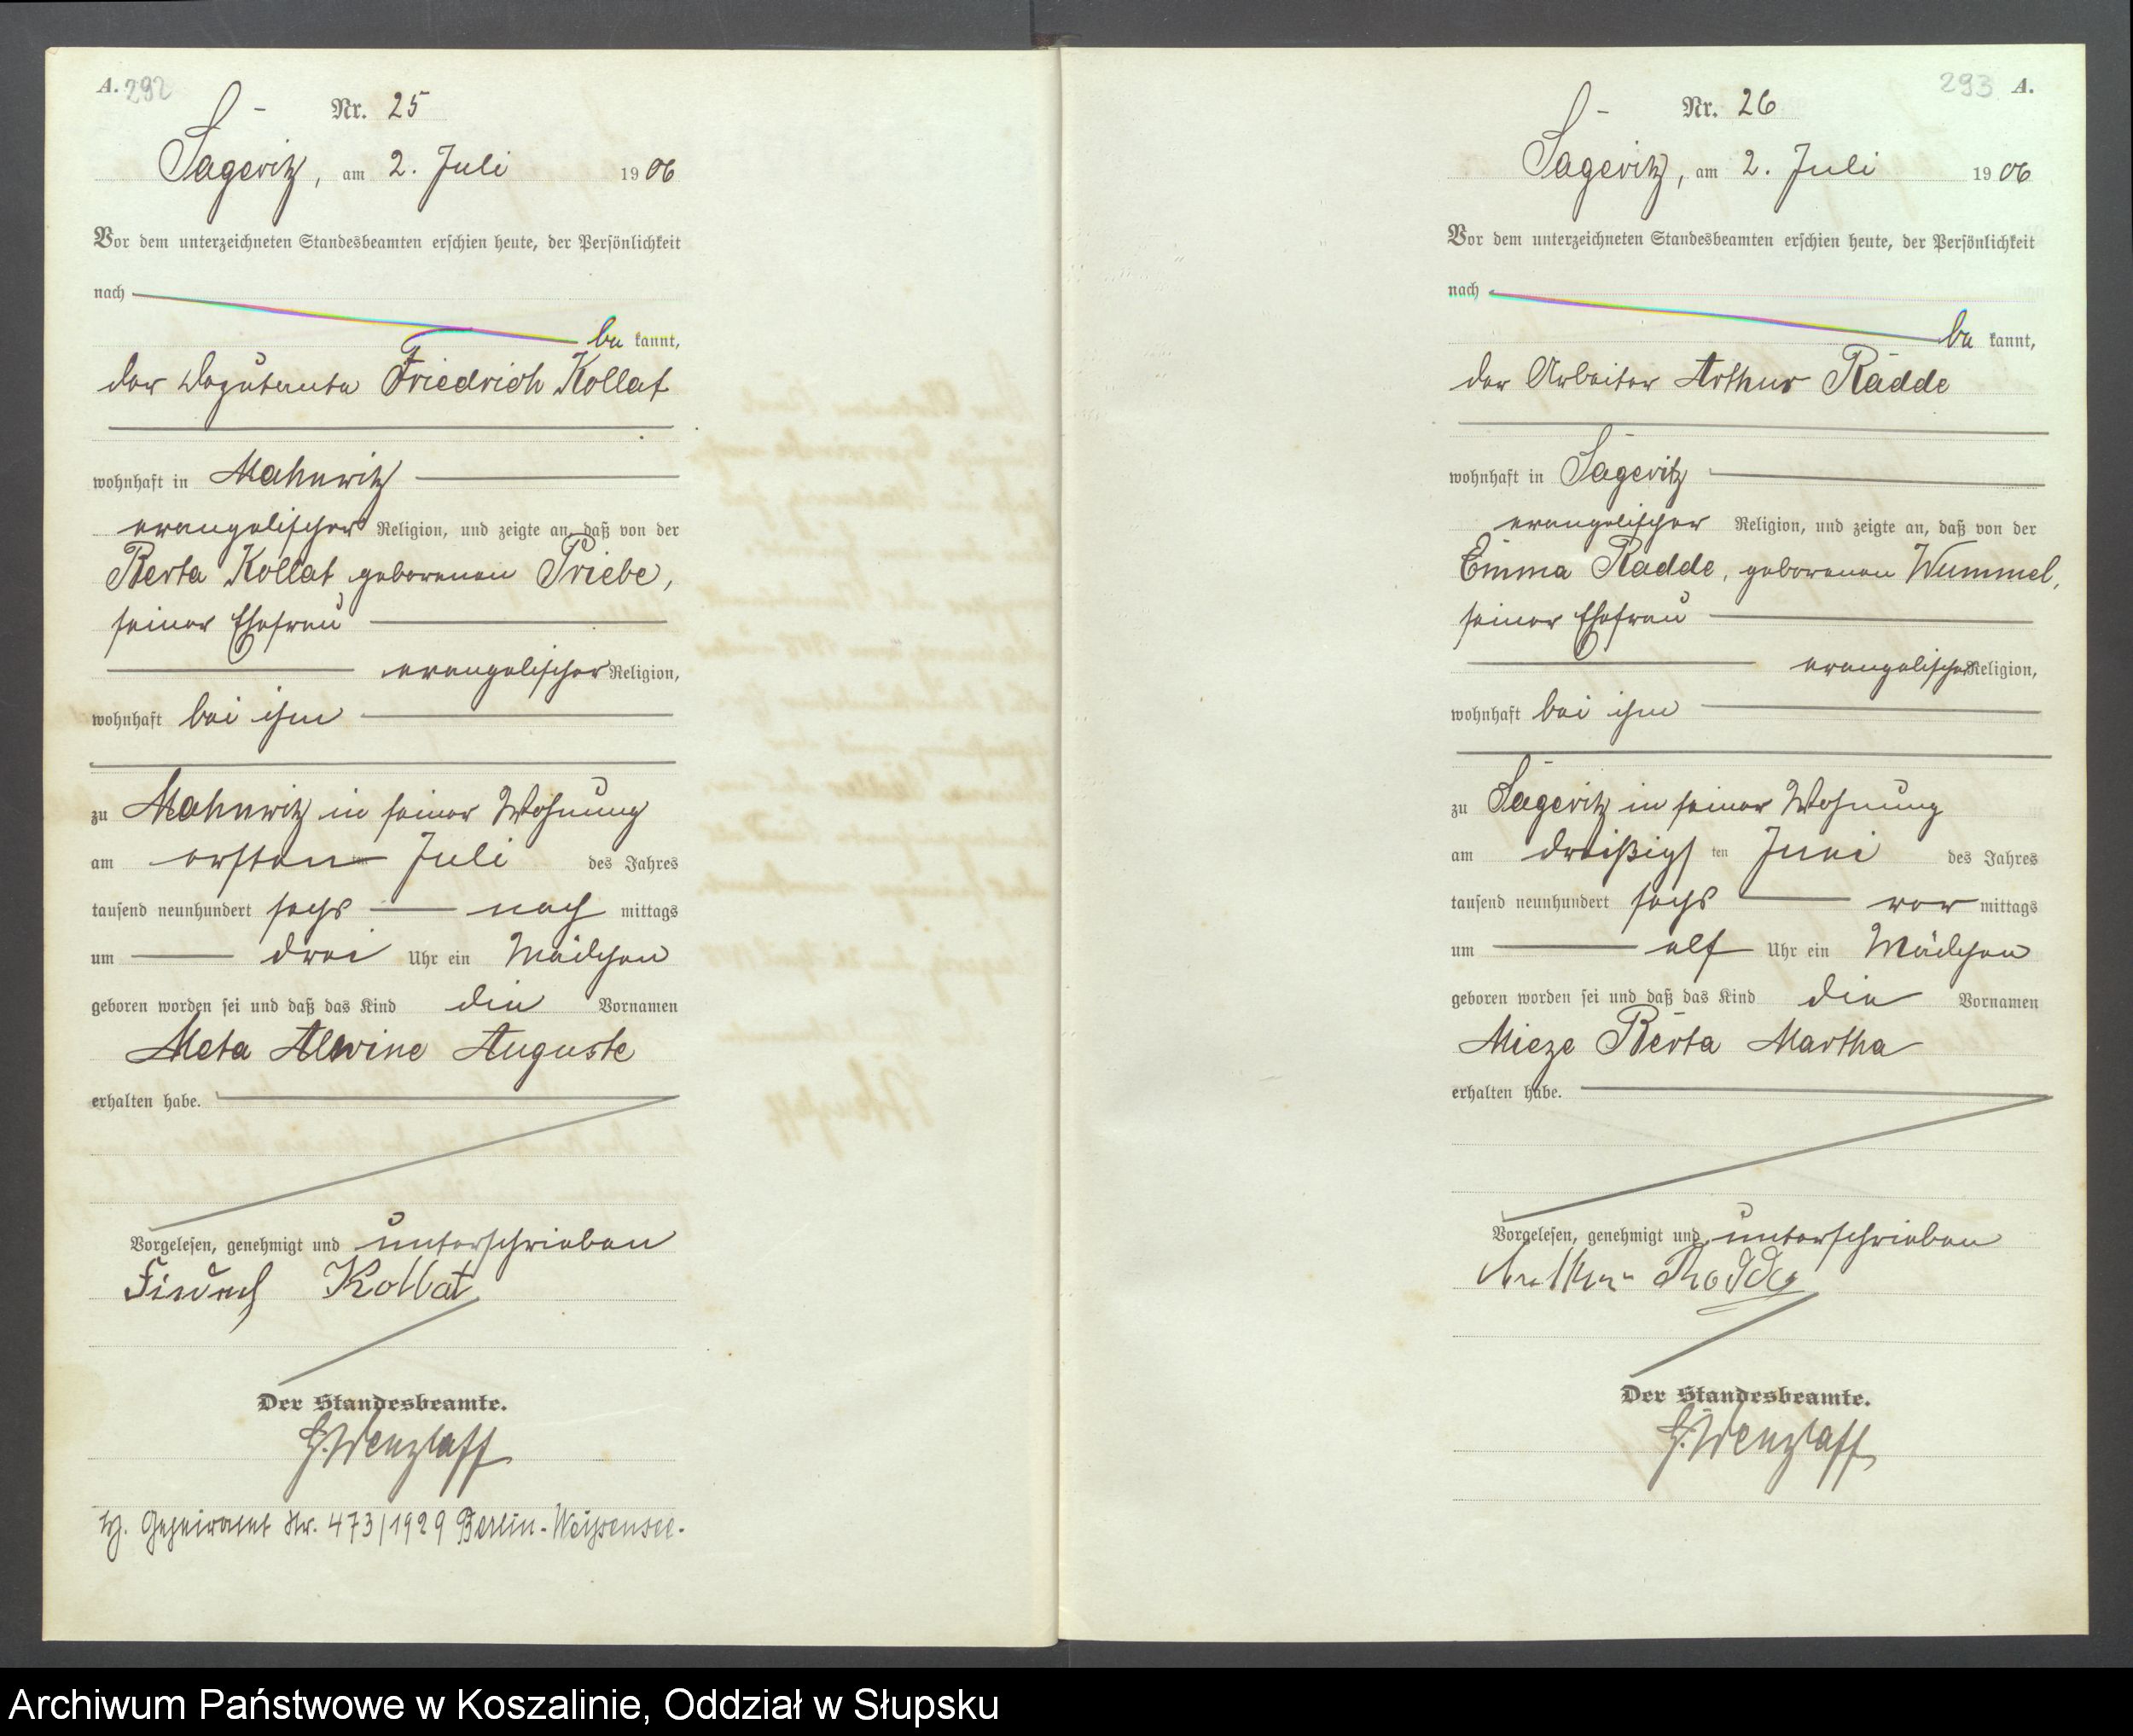 A. 292
Nr. 25
Sageritz, am 2. Juli 1906
Vor dem unterzeichneten Standesbeamten erschien heute, der Persönlichkeit
nach
be kannt,
der Deputante Friedrich Kollat
wohnhaft in Mahnwitz
evangelischer Religion, und zeigte an, daß von der
Berta Kollat geborenen Priebe,
seiner Ehefrau
evangelischer Religion,
wohnhaft bei ihm
zu Mahnwitz in seiner Wohnung
am ersten Juli des Jahres
tausend neunhundert sechs nach mittags
um drei Uhr ein Mädchen
geboren worden sei und daß das Kind die Vornamen
Meta Alwine Auguste
erhalten habe.
Vorgelesen, genehmigt und unterschrieben
Kollat
Der Standesbeamte.
G. Wenzlaff
Nr. 473/1929 Berlin-Weißensee.
293 A.
Nr. 26
Sageritz, am 2. Juli 1906
Vor dem unterzeichneten Standesbeamten erschien heute, der Persönlichkeit
nach
be kannt,
der Arbeiter Arthur Radde
wohnhaft in Sageritz
evangelischer Religion, und zeigte an, daß von der
Emma Radde, geborenen Wummel,
seiner Ehefrau
evangelischer Religion,
wohnhaft bei ihm
zu Sageritz in seiner Wohnung
am dreißigs ten Juni des Jahres
tausend neunhundert sechs vor mittags
um elf Uhr ein Mädchen
geboren worden sei und daß das Kind die Vornamen
Mieze Berta Martha
erhalten habe.
Vorgelesen, genehmigt und unterschrieben
Arthur Radde
Der Standesbeamte.
G. Wenzlaff
Archiwum Państwowe w Koszalinie, Oddział w Słupsku